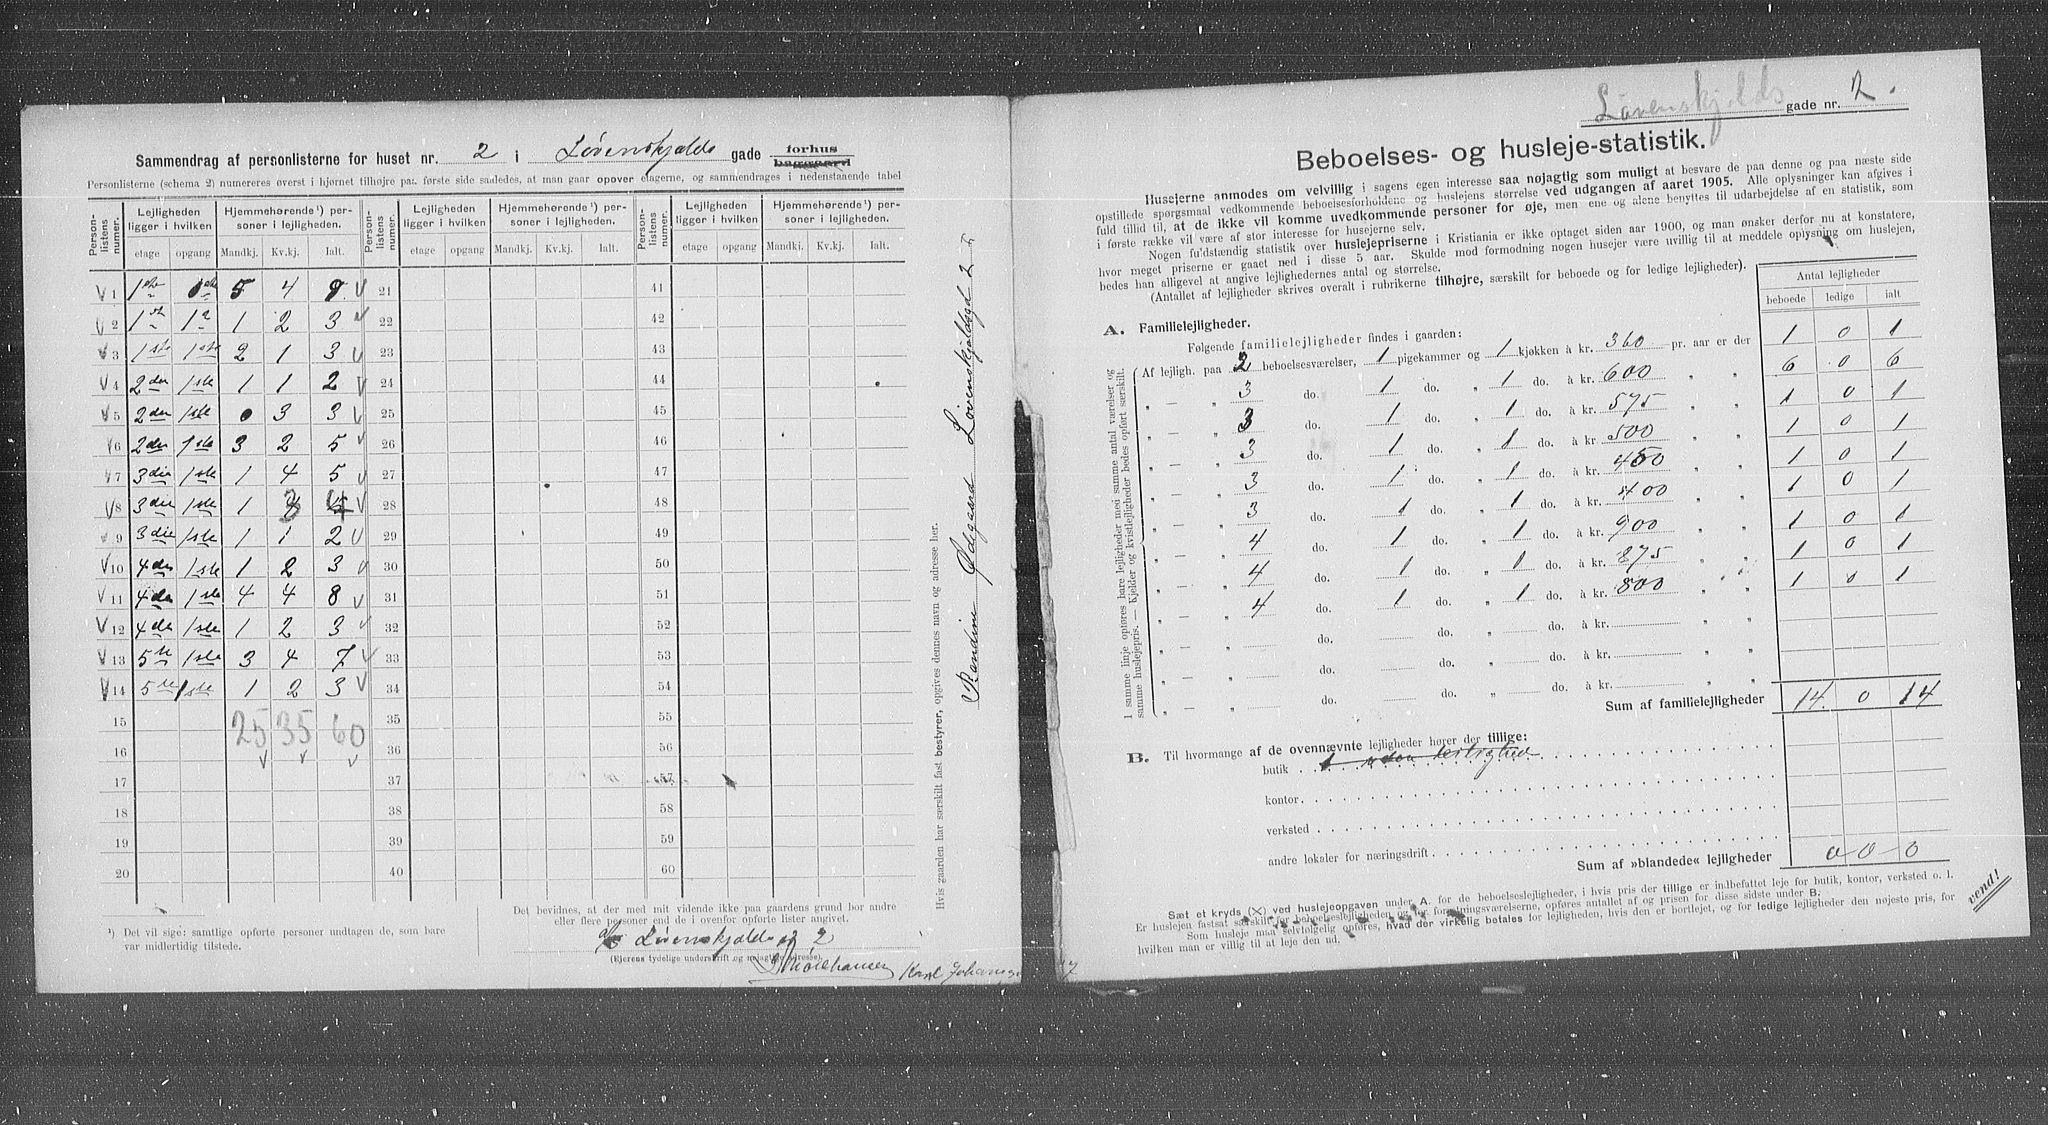 Sammendrag af personlisterne for huset nr. 2 i Løvenskjolds gade forhus
baggaard
Personlisterne (schema 2) numereres øverst i hjørnet tilhøjre paa første side saaledes, at man gaar opover etagerne, og sammendrages i nedenstaaende tabel
Person-listens nummer. Lejligheden ligger i hvilken Hjemmehørende ¹) personer i lejligheden. Person-listens numer. Lejligheden ligger i hvilken Hjemmehørende ¹) personer i lejligheden. Person-listens numer. Lejligheden ligger i hvilken Hjemmehørende ¹) personer i lejligheden.
etage opgang Mandkj. Kv.kj. Ialt. etage opgang Mandkj. Kv.kj. Ialt. etage opgang Mandkj. Kv.kj. Ialt.
V 1 1ste 1ste 5 4 9 V 21 41
V 2 1st 1 1 2 3 V 22 42
V 3 1ste 1ste 2 1 3 V 23 43
V 4 2den 1ste 1 1 2 V 24 44
V 5 2den 1ste 0 3 3 V 25 45
V 6 2den 1ste 3 2 5 V 26 46
V 7 3die 1ste 1 4 5 V 27 47
V 8 3die 1ste 1 3 4 V 28 48
V 9 3die 1ste 1 1 2 V 29 49
V 10 4de 1ste 1 2 3 V 30 50
V 11 4de 1ste 4 4 8 V 31 51
V 12 4de 1ste 1 2 3 V 32 52
V 13 5te 1ste 3 4 7 V 33 53
V 14 5te 1ste 1 2 3 V 34 54
15 25 35 60 35 55
16 V V V 36 56
17 37 57
18 38 58
19 39 59
20 40 60
¹) Det vil sige: samtlige opførte personer undtagen de, som bare
var midlertidig tilstede.
Det bevidnes, at der med mit vidende ikke paa gaardens grund bor andre
eller flere personer end de i ovenfor opførte lister angivet.
Løvenskjolds gd 2
(Ejerens tydelige underskrift og nøjagtige adresse).
Karl Johansg 17
Hvis gaarden har særskilt fast bestyrer, opgives dennes navn og adresse her.
Randine Ødegaard Løvenskjoldsgd 2
Løvenskjolds gade nr. 2.
Beboelses- og husleje-statistik.
Husejerne anmodes om velvillig i sagens egen interesse saa nøjagtig som muligt at besvare de paa denne og paa næste side
opstillede spørgsmaal vedkommende beboelsesforholdene og huslejens størrelse ved udgangen af aaret 1905. Alle oplysninger kan afgives i
fuld tillid til, at de ikke vil komme uvedkommende personer for øje, men ene og alene benyttes til udarbejdelse af en statistik, som
i første række vil være af stor interesse for husejerne selv.
Nogen fuldstændig statistik over huslejepriserne i Kristiania er ikke optaget siden aar 1900, og man ønsker derfor nu at konstatere,
hvor meget priserne er gaaet ned i disse 5 aar. Skulde mod formodning nogen husejer være uvillig til at meddele oplysning om huslejen,
bedes han alligevel at angive lejlighedernes antal og størrelse.
(Antallet af lejligheder skrives overalt i rubrikerne tilhøjre, særskilt for beboede og for ledige lejligheder).
Antal lejligheder
beboede ledige ialt
A. Familielejligheder.
Følgende familielejligheder findes i gaarden:
Af lejligh. paa 2 beboelsesværelser, 1 pigekammer og 1 kjøkken à kr. 360 pr. aar er der 1 0 1
„ — „ 3 do. 1 do. „ 1 do. à kr. 600 „ „ 6 0 6
„ — „ 3 do. 1 do. „ 1 do. à kr. 575 „ „ 1 0 1
„ — „ 3 do. 1 do. „ 1 do. à kr. 500 „ „ 1 0 1
„ — „ 3 do. 1 do. „ 1 do. à kr. 450 „ „ 1 0 1
„ — „ 3 do. 1 do. „ 1 do. à kr. 400 „ „ 1 0 1
„ — „ 4 do. 1 do. „ 1 do. à kr. 900 „ „ 1 0 1
„ — „ 4 do. 1 do. „ 1 do. à kr. 875 „ „ 1 0 1
„ — „ 4 do. 1 do. „ 1 do. à kr. 800 „ „ 1 0 1
„ — „ do. do. „ do. à kr. „ „
„ — „ do. do. „ do. à kr. „ „
„ — „ do. do. „ do. à kr. „ „
I samme linje opføres bare lejligheder med samme antal værelser og
samme huslejepris. — Kjelder og kvistlejligheder bedes opført særskilt.
Sum af familielejligheder 14 0 14
B. Til hvormange af de ovennævnte lejligheder hører der tillige:
butik 1 uden leilighed
kontor
verksted
andre lokaler for næringsdrift
Sum af »blandede« lejligheder 0 0 0
Sæt et kryds (X) ved huslejeopgaven under A. for de beboelseslejligheder, i hvis pris der tillige er indbefattet leje for butik, kontor, verksted o. l.
Er huslejen fastsat særskilt for beboelseslejligheden og for forretningsværelserne, opføres antallet af og prisen for disse sidste under B.
Som husleje maa selvfølgelig opføres, hvad der virkelig betales for lejligheden, hvis den er bortlejet, og for ledige lejligheder den nøjeste pris, for
hvilken man er villig til at leje den ud.
vend!